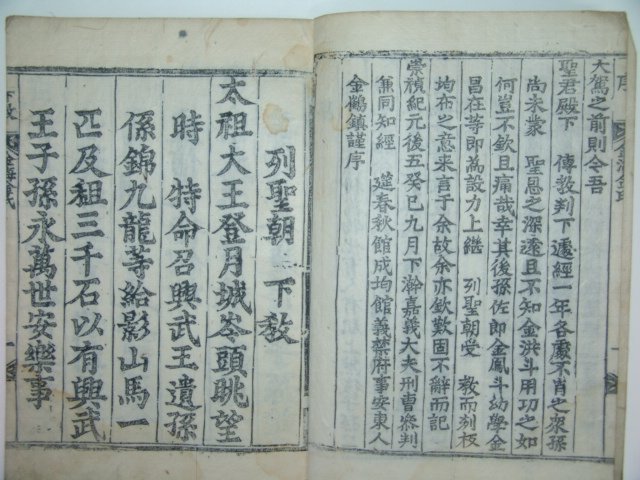 大駕之前則令吾
聖君殿下 傳敎判下遞經一年各處不肖之衆孫
尙未蒙 聖恩之深遠且不知金洪斗用功之如
何豈不欽且痛哉幸其後孫佐郎金鳳斗幼學金
昌在等卽爲設力上繼 列聖朝受 敎而列板
均布之意来言于余故余亦欽歎固不辭而記
崇禎紀元後五癸巳九月下澣嘉義大夫刑曹叅判
兼同知經 筵春秋館成均館義禁府事安東人
金鶴鎭謹序
列聖朝 下敎
太祖大王登月城岺頭眺望
時 特命召興武王遺孫
係錦九龍等給影山馬一
匹及祖三千石以有興武
王子孫永萬世安樂事